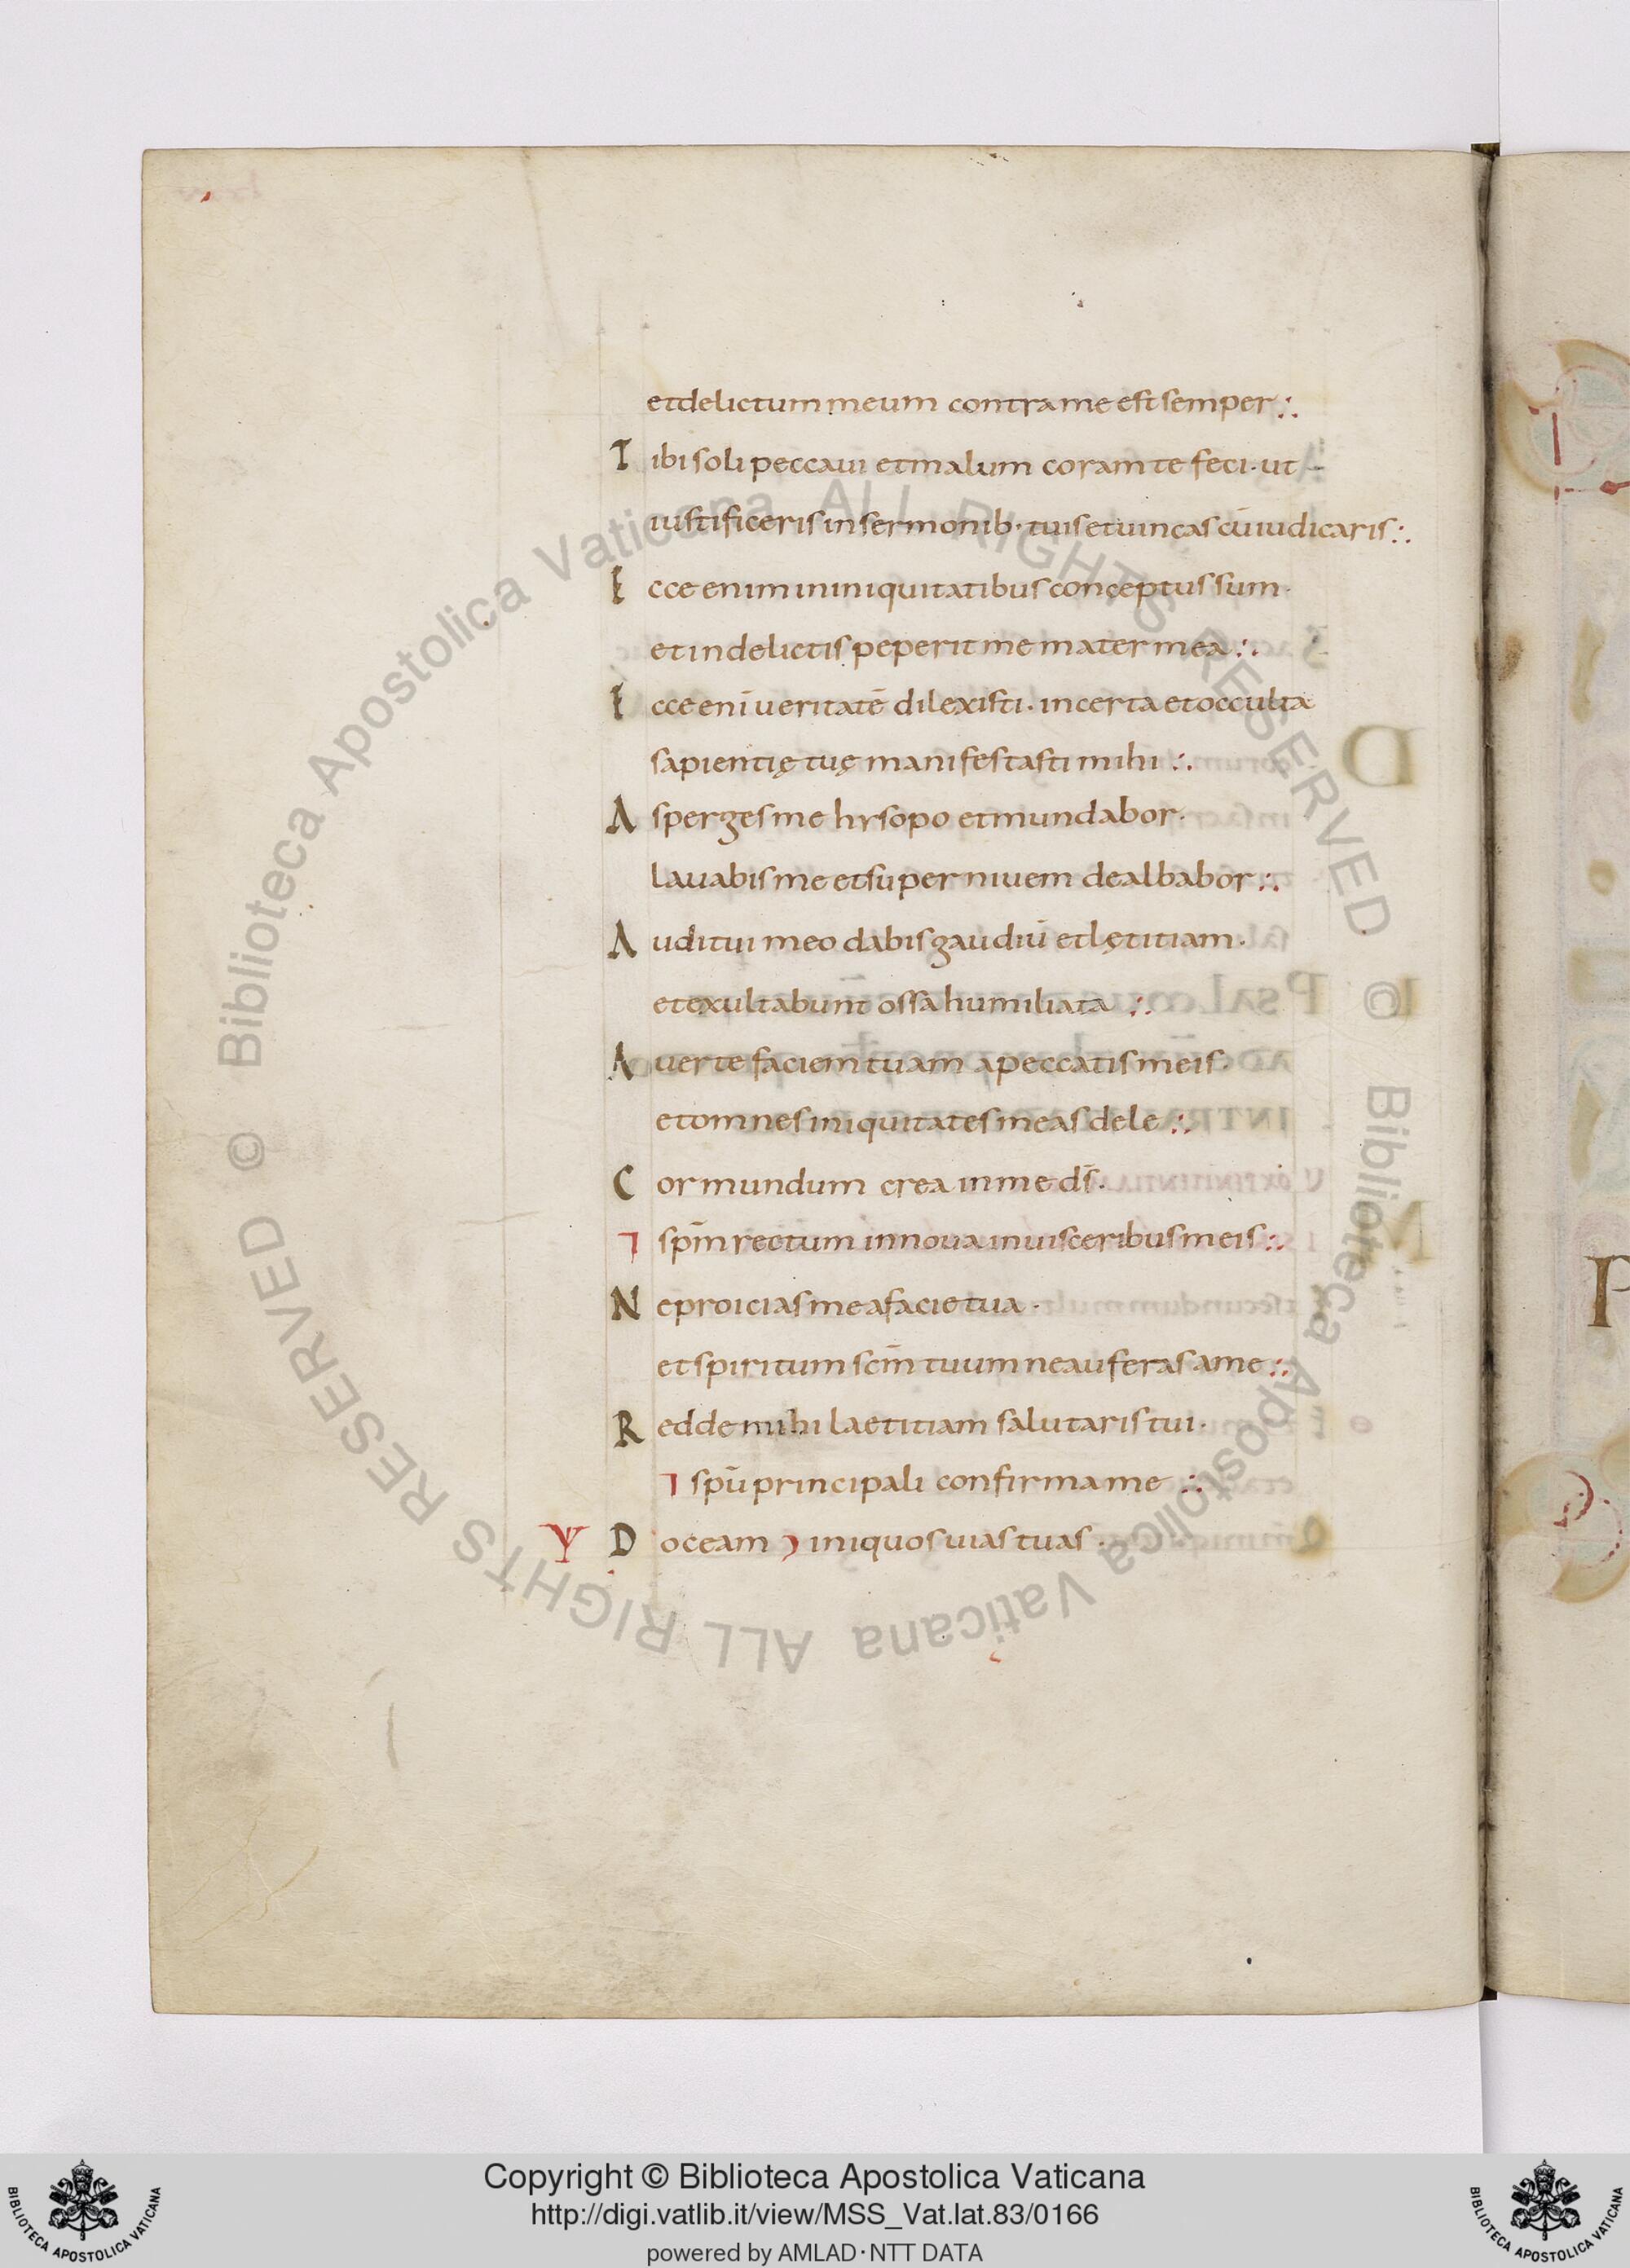 et delictum meum contra me est semper :.
Tibi soli peccavi et malum coram te feci · ut
iustificeris in sermonib· tuis et vincas cū iudicaris :.
Ecce enim in iniquitatibus conceptus sum ·
et in delictis peperit me mater mea :.
Ecce enī veritatē dilexisti · incerta et occulta
sapientię tuę manifestasti mihi :.
Asperges me hysopo et mundabor ·
lavabis me et super nivem dealbabor :.
Auditui meo dabis gaudiū et lętitiam ·
et exultabunt ossa humiliata :.
Averte faciem tuam a peccatis meis ·
et omnes iniquitates meas dele :.
Cor mundum crea in me d̄s ·
⁊ sp̄m rectum innova in visceribus meis :.
Ne proicias me a facie tua ·
et spiritum sc̄m tuum ne auferas a me :.
Redde mihi laetitiam salutaris tui ·
⁊ spū principali confirma me :.
Y Doceam iniquos vias tuas ·
© Biblioteca Apostolica Vaticana ALL RIGHTS RESERVED © Biblioteca Apostolica Vaticana ALL RIGHTS RESERVED
Copyright © Biblioteca Apostolica Vaticana
http://digi.vatlib.it/view/MSS_Vat.lat.83/0166
powered by AMLAD·NTT DATA
BIBLIOTECA APOSTOLICA VATICANA
BIBLIOTECA APOSTOLICA VATICANA